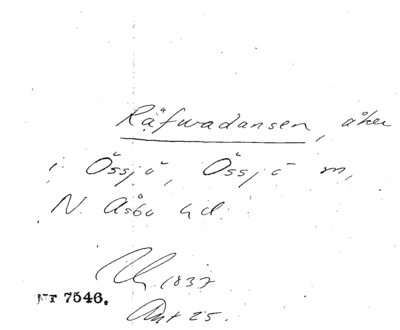 Räfwadansen, åker
i Össjö, Össjö sn,
N. Åsbo hd.
1837
NT 7546.
Akt 25.